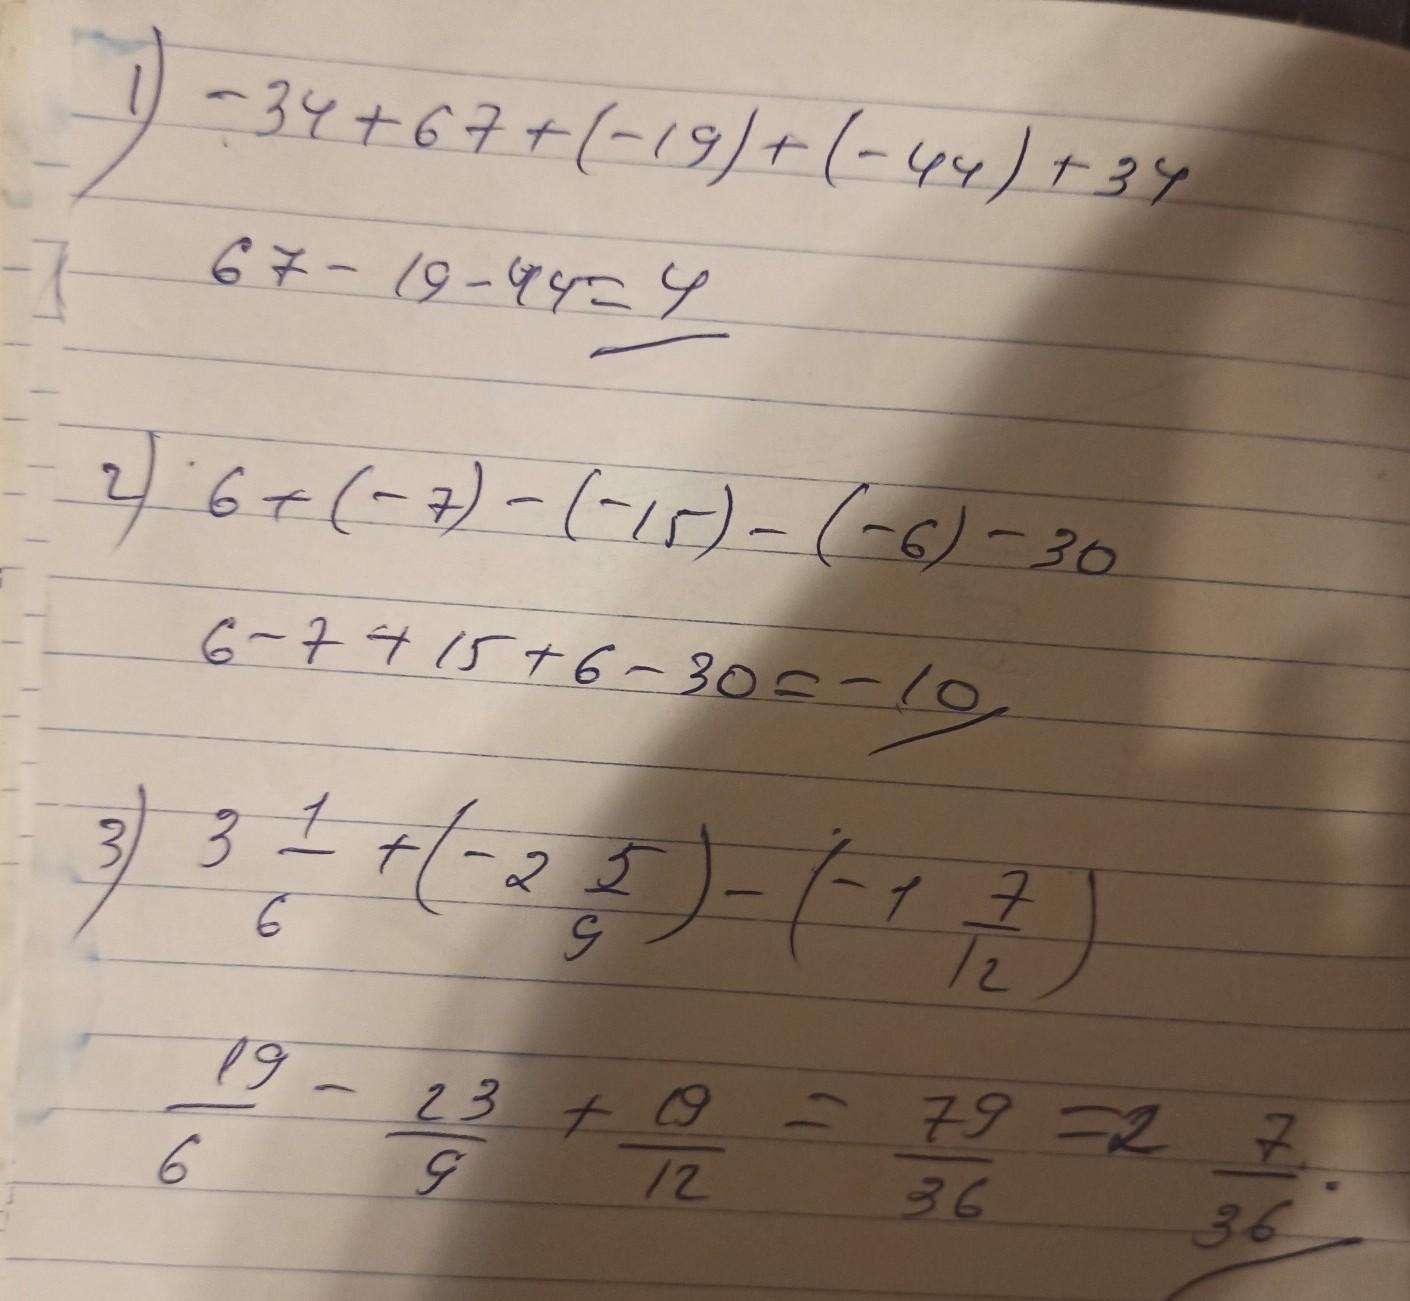 1) -34+67+(-19)+(-44)+34
67-19-44=4
2) 6+(-7)-(-15)-(-6)-30
6-7+15+6-30=-10
3) 3 1/6 +(-2 5/9)-(-1 7/12)
19/6 - 23/9 + 19/12 = 79/36 = 2 7/36.